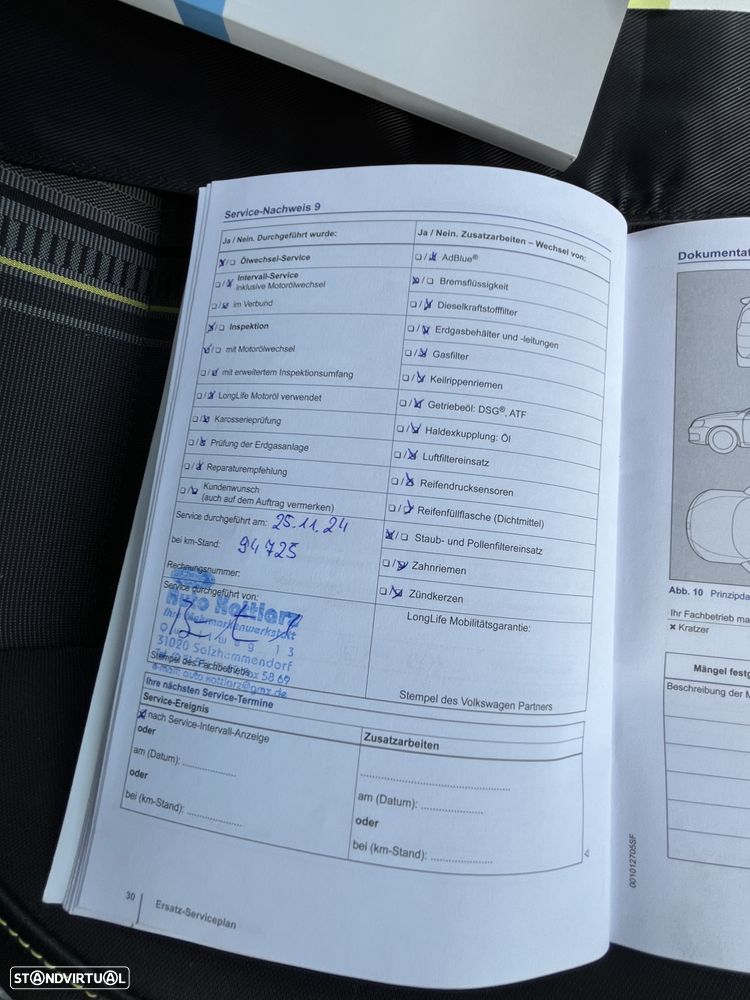 Service-Nachweis 9
Ja / Nein. Durchgeführt wurde:
☒/☐ Ölwechsel-Service
☐/☒ Intervall-Service
inklusive Motorölwechsel
☐/☒ im Verbund
☒/☐ Inspektion
☒/☐ mit Motorölwechsel
☐/☒ mit erweitertem Inspektionsumfang
☐/☒ LongLife Motoröl verwendet
☐/☒ Karosserieprüfung
☐/☒ Prüfung der Erdgasanlage
☐/☒ Reparaturempfehlung
☐/☒ Kundenwunsch
(auch auf dem Auftrag vermerken)
Service durchgeführt am: 25.11.24
bei km-Stand: 94725
Rechnungsnummer:
Service durchgeführt von:
Auto Kottlarz
Ihre Mehrmarkenwerkstatt
13
31020 Salzhemmendorf
58 69
e-mail: auto.kottlarz@gmx.de
Stempel des Fachbetriebs
Ja / Nein. Zusatzarbeiten – Wechsel von:
☐/☒ AdBlue®
☒/☐ Bremsflüssigkeit
☐/☒ Dieselkraftstofffilter
☐/☒ Erdgasbehälter und -leitungen
☐/☒ Gasfilter
☐/☒ Keilrippenriemen
☐/☒ Getriebeöl: DSG®, ATF
☐/☒ Haldexkupplung: Öl
☐/☒ Luftfiltereinsatz
☐/☒ Reifendrucksensoren
☐/☒ Reifenfüllflasche (Dichtmittel)
☒/☐ Staub- und Pollenfiltereinsatz
☐/☒ Zahnriemen
☐/☒ Zündkerzen
LongLife Mobilitätsgarantie:
Stempel des Volkswagen Partners
Ihre nächsten Service-Termine
Service-Ereignis
☒ nach Service-Intervall-Anzeige
oder
am (Datum): ..................
oder
bei (km-Stand): ..................
Zusatzarbeiten
..................................................
am (Datum): ....................
oder
bei (km-Stand): ....................
30
Ersatz-Serviceplan
Dokumentat
Abb. 10 Prinzipda
Ihr Fachbetrieb ma
× Kratzer
Mängel festg
Beschreibung der M
001012705SF
STANDVIRTUAL